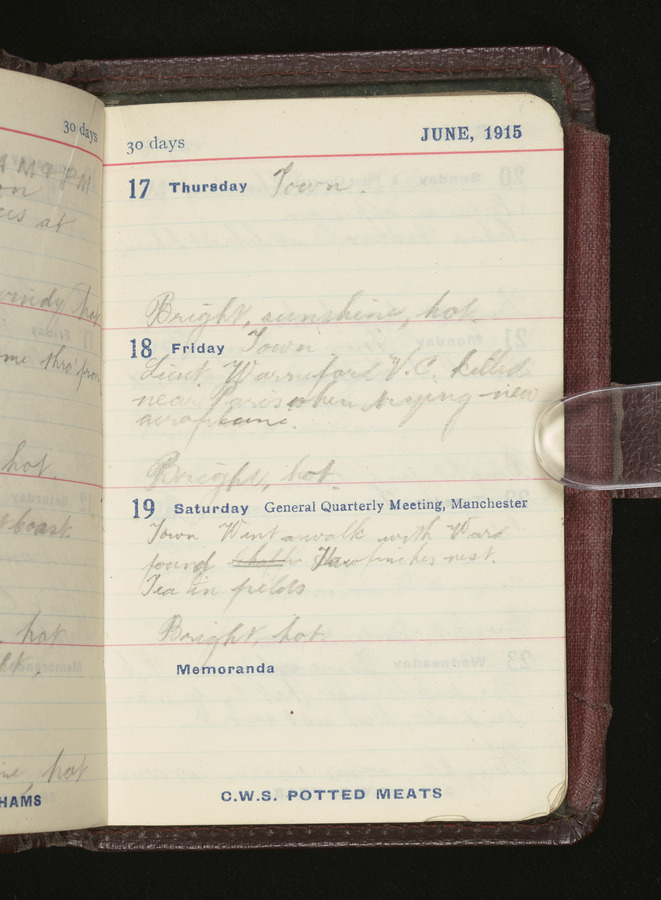 30 days
on
at
windy hot
me thro' from
hot.
boast
hot
hot
HAMS
30 days JUNE, 1915
17 Thursday Town.
Bright, sunshine, hot
18 Friday Town
Lieut. Warneford V.C. killed
near Paris when trying new
aeroplane.
Bright, hot
19 Saturday General Quarterly Meeting, Manchester
Town Went a walk with Ward
found Hawfinches nest.
Tea in fields
Bright, hot.
Memoranda
C.W.S. POTTED MEATS